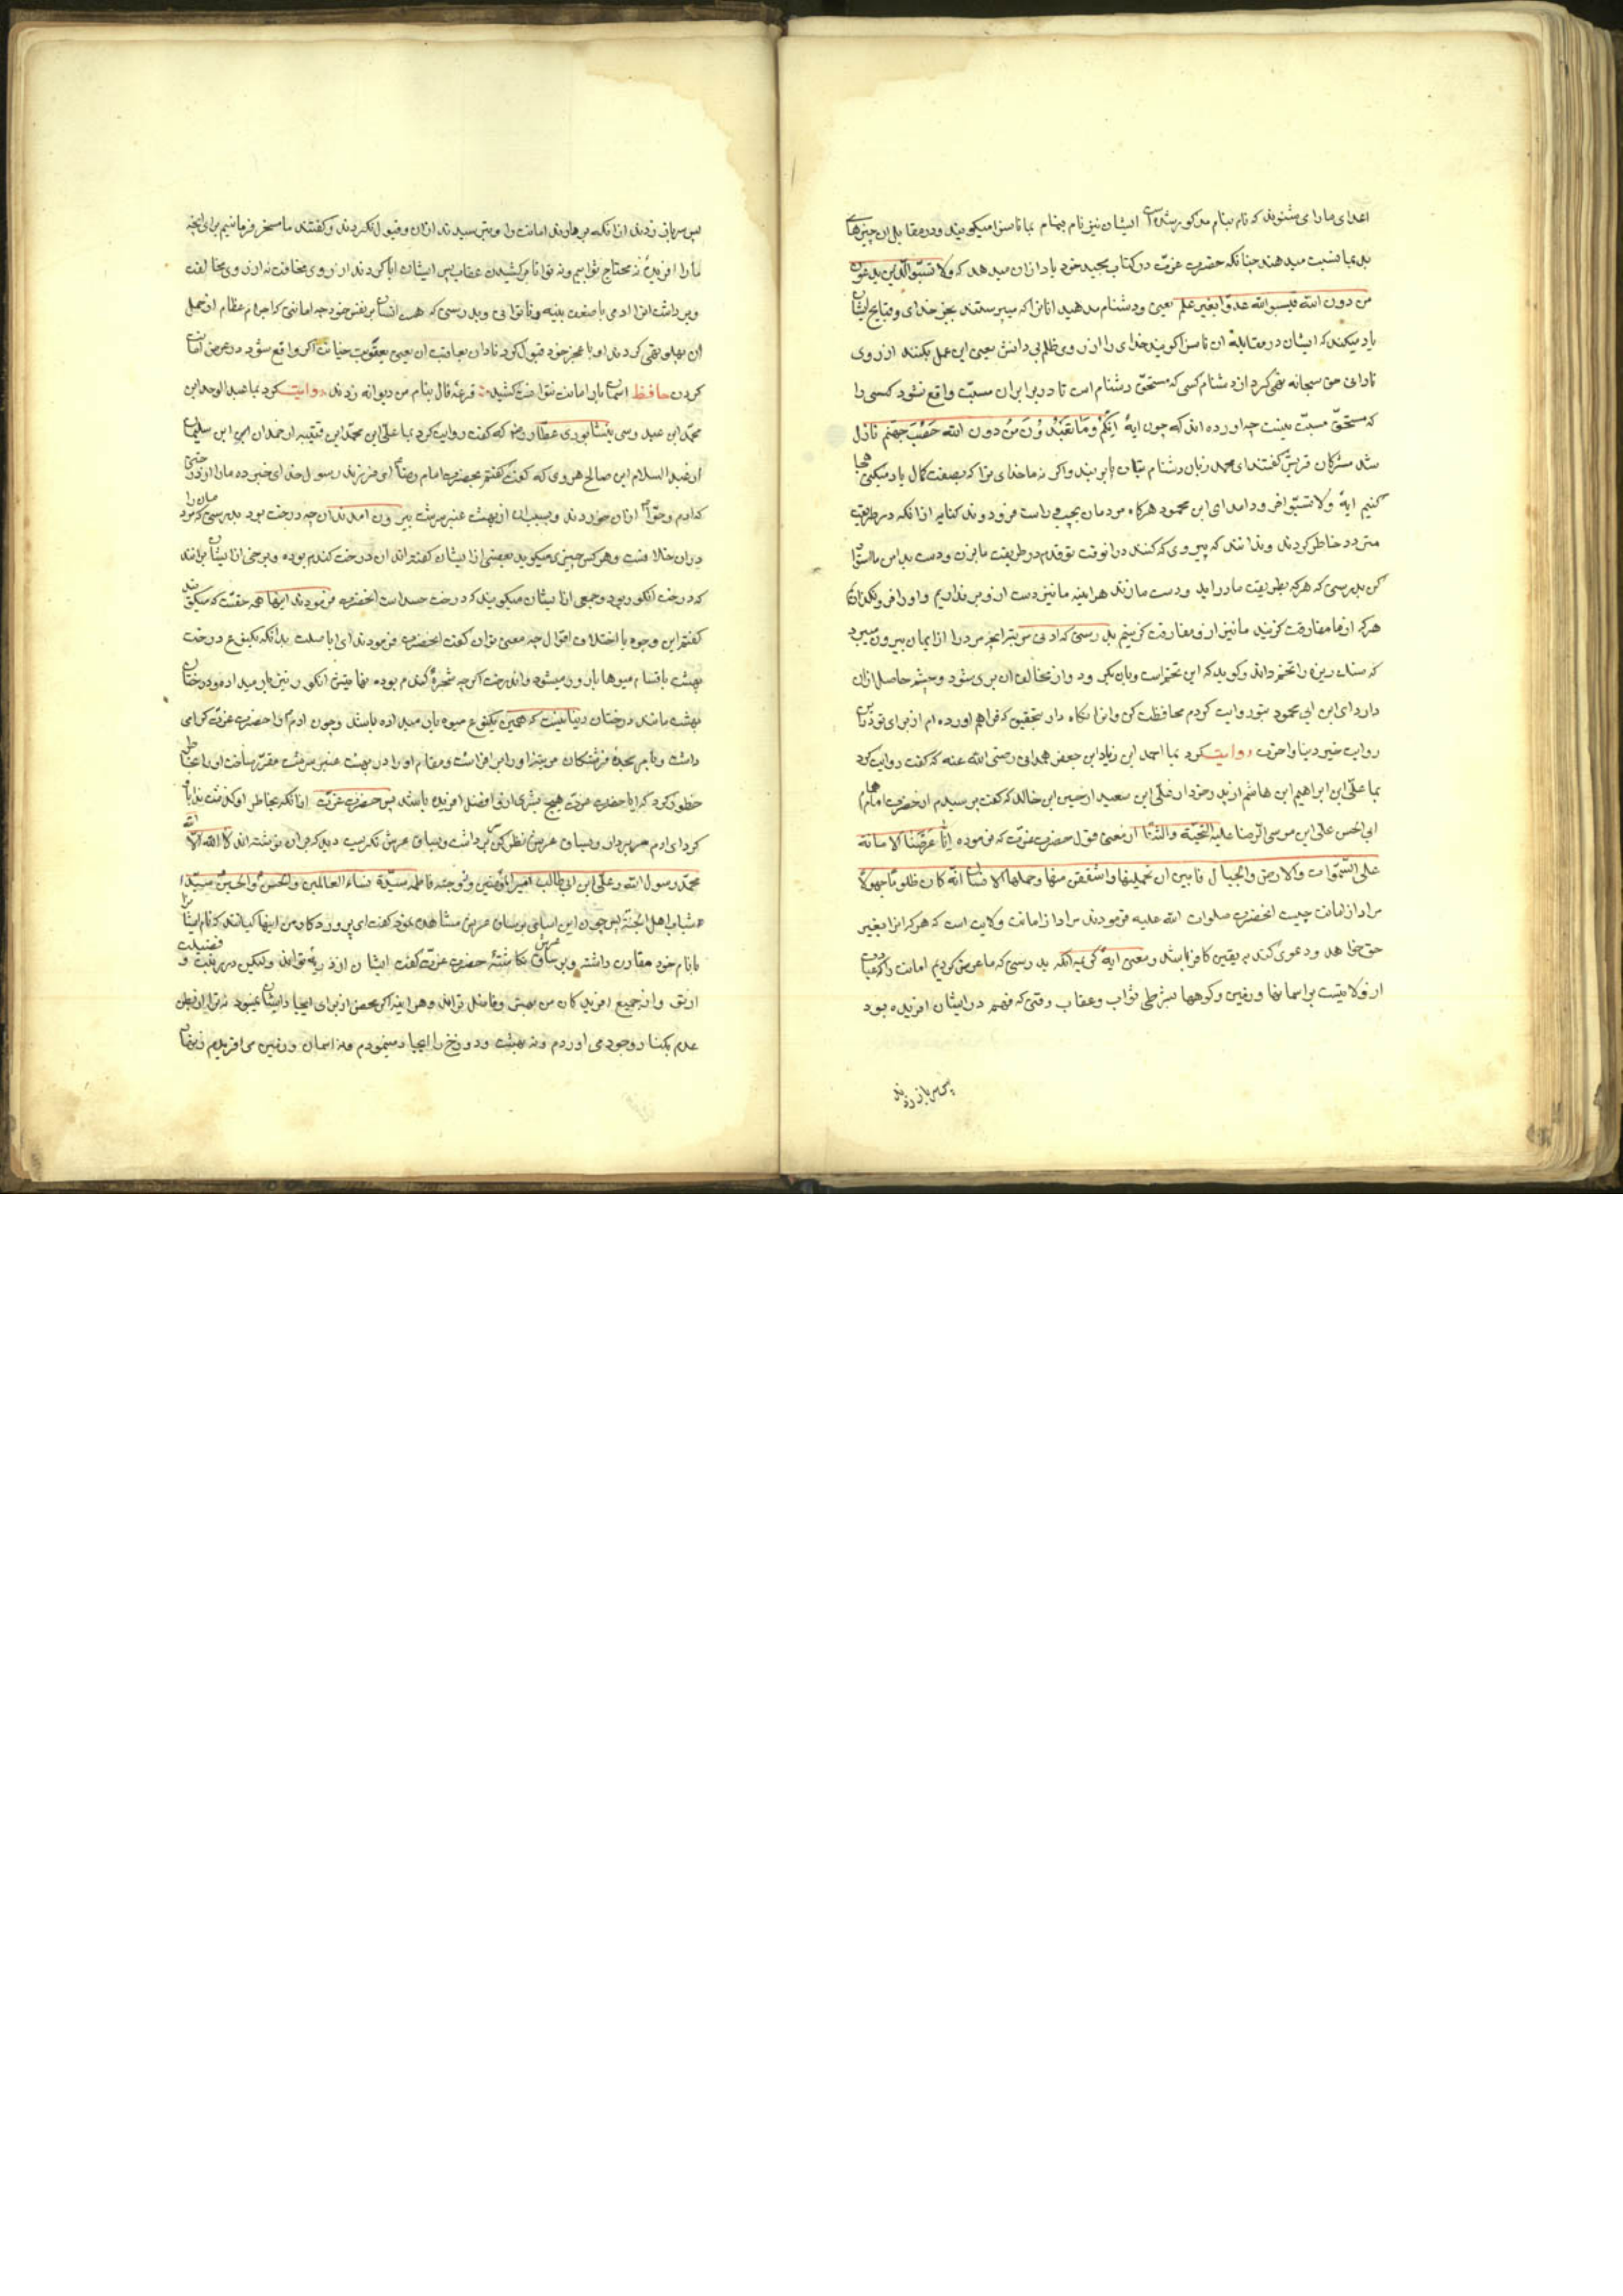 اعدای ما را می شنوند که نام بنام مذکور شده ایشان نیز نام بنام بما ناسزا میکویند و در مقابل ان چیزهای
بد بما نسبت میدهند چنانکه حضرت عزت در کتاب مجید خود یاد از ان میدهد که ولا تسبّوا الّذین یدعون
من دون الله فیسبو الله عدوًا بغیر علم یعنی و دشنام مدهید انانرا که میپرستند بجز خدای و قبایح ایشان
یاد میکنند که ایشان در مقابلهٔ ان ناسزا کویند خدای را از روی ظلم بی دانش یعنی این عمل بکنند از روی
نادانی حق سبحانه نهی کرد از دشنام کسی که مستحقّ دشنام است تا در برابر ان مسبّت واقع نشود کسی را
که مستحقّ مسبّت نیست چه اورده اند که چون ایهٔ اِنَّکُم وَمَا تعبُدُونَ مِن دون الله حَصَبُ جهنّم نازل
شد مشرکان قریش کفتند ای محمد زبان از دشنام بتان باز بند و اکر نه ما خدای ترا که بصفت کمال یاد میکنی هجا
کنیم ایهٔ ولا تسبّوا فرود امد ای ابن محمود هرکاه مردمان بچپ و راست فرود روند کنایه از انکه در طریقت
متردد خاطر کردند و ندانند که پیروی که کنند در انوقت تو قدم در طریقت ما بزن و دست بدامن ما استوار
کن بدرستی که هرکه بطریقت ما در اید و دست ما زند هراینه ما نیز دست از و برنداریم و او را فرو نکذاریم
هرکه از ما مفارقت کزیند ما نیز از و مفارقت کزینیم بدرستی که ادنی مرتبه انچه مرد را از ایمان بیرون میبرد
که سنک ریزه را تخم داند و کوید که این تخم است و بان بکرود و از مخالف ان بری شود و چشم حاصل از ان
دارد ای ابن ابی محمود بتو روایت کردم محافظت کن و انرا نکاه دار بتحقیق که فراهم اورده ام از برای تو در این
روایت خیر دنیا و اخرت روایت کرد بما احمد ابن زیاد ابن جعفر همدانی رضی الله عنه که کفت روایت کرد
بما علی ابن ابراهیم ابن هاشم از پدر خود از علی ابن سعید از حسین ابن خالد که کفت پرسیدم از حضرت امام همام
ابی الحسن علی ابن موسی الرضا علیه التحیّة والثنا از معنی قول حضرت عزت که فرموده اِنّا عَرَضْنَا الامانة
علی السّموات والارض والجبال فابین ان یحملنها واشفقن منها وحملها الانسان انّه کان ظلومًا جهولاً
مراد از امانت چیست انحضرت صلوات الله علیه فرمودند مراد از امانت ولایت است که هرکه انرا بغیر
حق خواهد و دعوی کند به یقین کافر باشد و معنی ایهٔ کریمه انکه بدرستی که ما عرض کردیم امانت را که عبارت
از ولایتست بر اسمانها و زمین و کوهها بشرطی ثواب و عقاب وقتی که فهم در ایشان افریده بود
پس سر باز زدند
پس سر باز زدند از انکه بردارند امانت را و بترسیدند از ان و قبول نکردند و کفتند ما مسخر فرمانیم برای انچه
ما را افریدهٔ نه محتاج ثوابیم و نه توانا بر کشیدن عقاب پس ایشان ابا کردند از روی مخافت نه از روی مخالفت
و برداشت انرا ادمی با ضعف بنیه و ناتوانی و بدرستی که هست انسان بر نفس خود چه امانتی که اجرام عظام از حمل
ان پهلو تهی کردند او با عجز خود قبول کرد نادان بعاقبت ان یعنی بعقوبت خیانت اکر واقع شود در عرض امانت
کردن حافظ اسمان بار امانت نتوانست کشید قرعهٔ فال بنام من دیوانه زدند روایت کرد بما عبدالواحد ابن
محمّد ابن عبدوس نیشابوری عطّار رض که کفت روایت کرد بما علی ابن محمّد ابن قتیبه از حمدان ابن سلیمان
از عبدالسلام ابن صالح هروی که کفت کفتم بحضرت امام رضا ای فرزند رسول خدای خبر ده ما را از درختی
که ادم و حوّا از ان خوردند و بسبب ان از بهشت عنبر سرشت بیرون امدند ان چه درخت بود بدرستی که مردمان را
در ان خلافست و هرکس چیزی میکوید بعضی از ایشان کفته اند ان درخت کندم بوده و برخی از ایشان برانند
که درخت انکور بود و جمعی از ایشان میکویند که درخت حسد است انحضرت فرمودند اینها همه حقست که میکویند
کفتم این وجوه با اختلاف اقوال چه معنی توان کفت انحضرت فرمودند ای ابا صلت بدانکه یک نوع درخت
بهشت باقسام میوها بارور میشود و اندرخت اکرچه شجرهٔ کندم بوده اما میتوان انکور نیز بار میداده و درختان
بهشت مانند درختان دنیا نیست که همین یکنوع میوه بار میداده باشد و چون ادم را حضرت عزت کرامی
داشت و بامر سجدهٔ فرشتکان مرتبه او را برافراشت و مقام او را در بهشت عنبر سرشت مقرّر ساخت او را بخاطر
خطور کرد که ایا حضرت عزت هیچ بشری از و افضل افریده باشد پس حضرت عزّت انچه بخاطر او کذشت ندا باو
کرد ای ادم سر بردار و بساق عرش نظر کن سر برداشت و بساق عرش نکریست دید که بر ان نوشته اند لا اله الا الله
محمّد رسول الله و علی ابن ابی طالب امیر المؤمنین و زوجته فاطمه سیّدة نساء العالمین والحسن والحسین سیّدا
شباب اهل الجنّة پس چون این اسامی بر ساق عرش مشاهده نمود کفت ای پروردکار من اینها کیانند که نام ایشان را
با نام خود مقارن داشته و بر ساق عرش نکاشتهٔ حضرت عزت کفت ایشان از ذریهٔ تواند ولیکن در مرتبت و فضیلت
از تو و از جمیع افریدکان من بهتر و فاضل تراند و هر اینه اکر محض از برای ایجاد ایشان نمیبود نه ترا از بطن
عدم بکنار وجود می اوردم و نه بهشت و دوزخ را ایجاد مینمودم و نه اسمان و زمین می افریدم زنهار